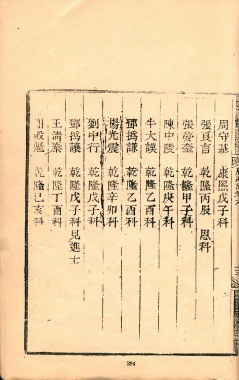 周守基　康熙戊子科
張真言　乾隆丙辰　恩科
張蔓金　乾隆甲子科
陳中陵　乾隆庚午科
牛大謨　乾隆乙酉科
鄧爲謙　乾隆乙酉科
楊光震　乾隆辛卯科
劉中行　乾隆戊子科
鄧爲讓　乾隆戊子科見進士
王淸泰　乾隆丁酉科
乾隆己亥科